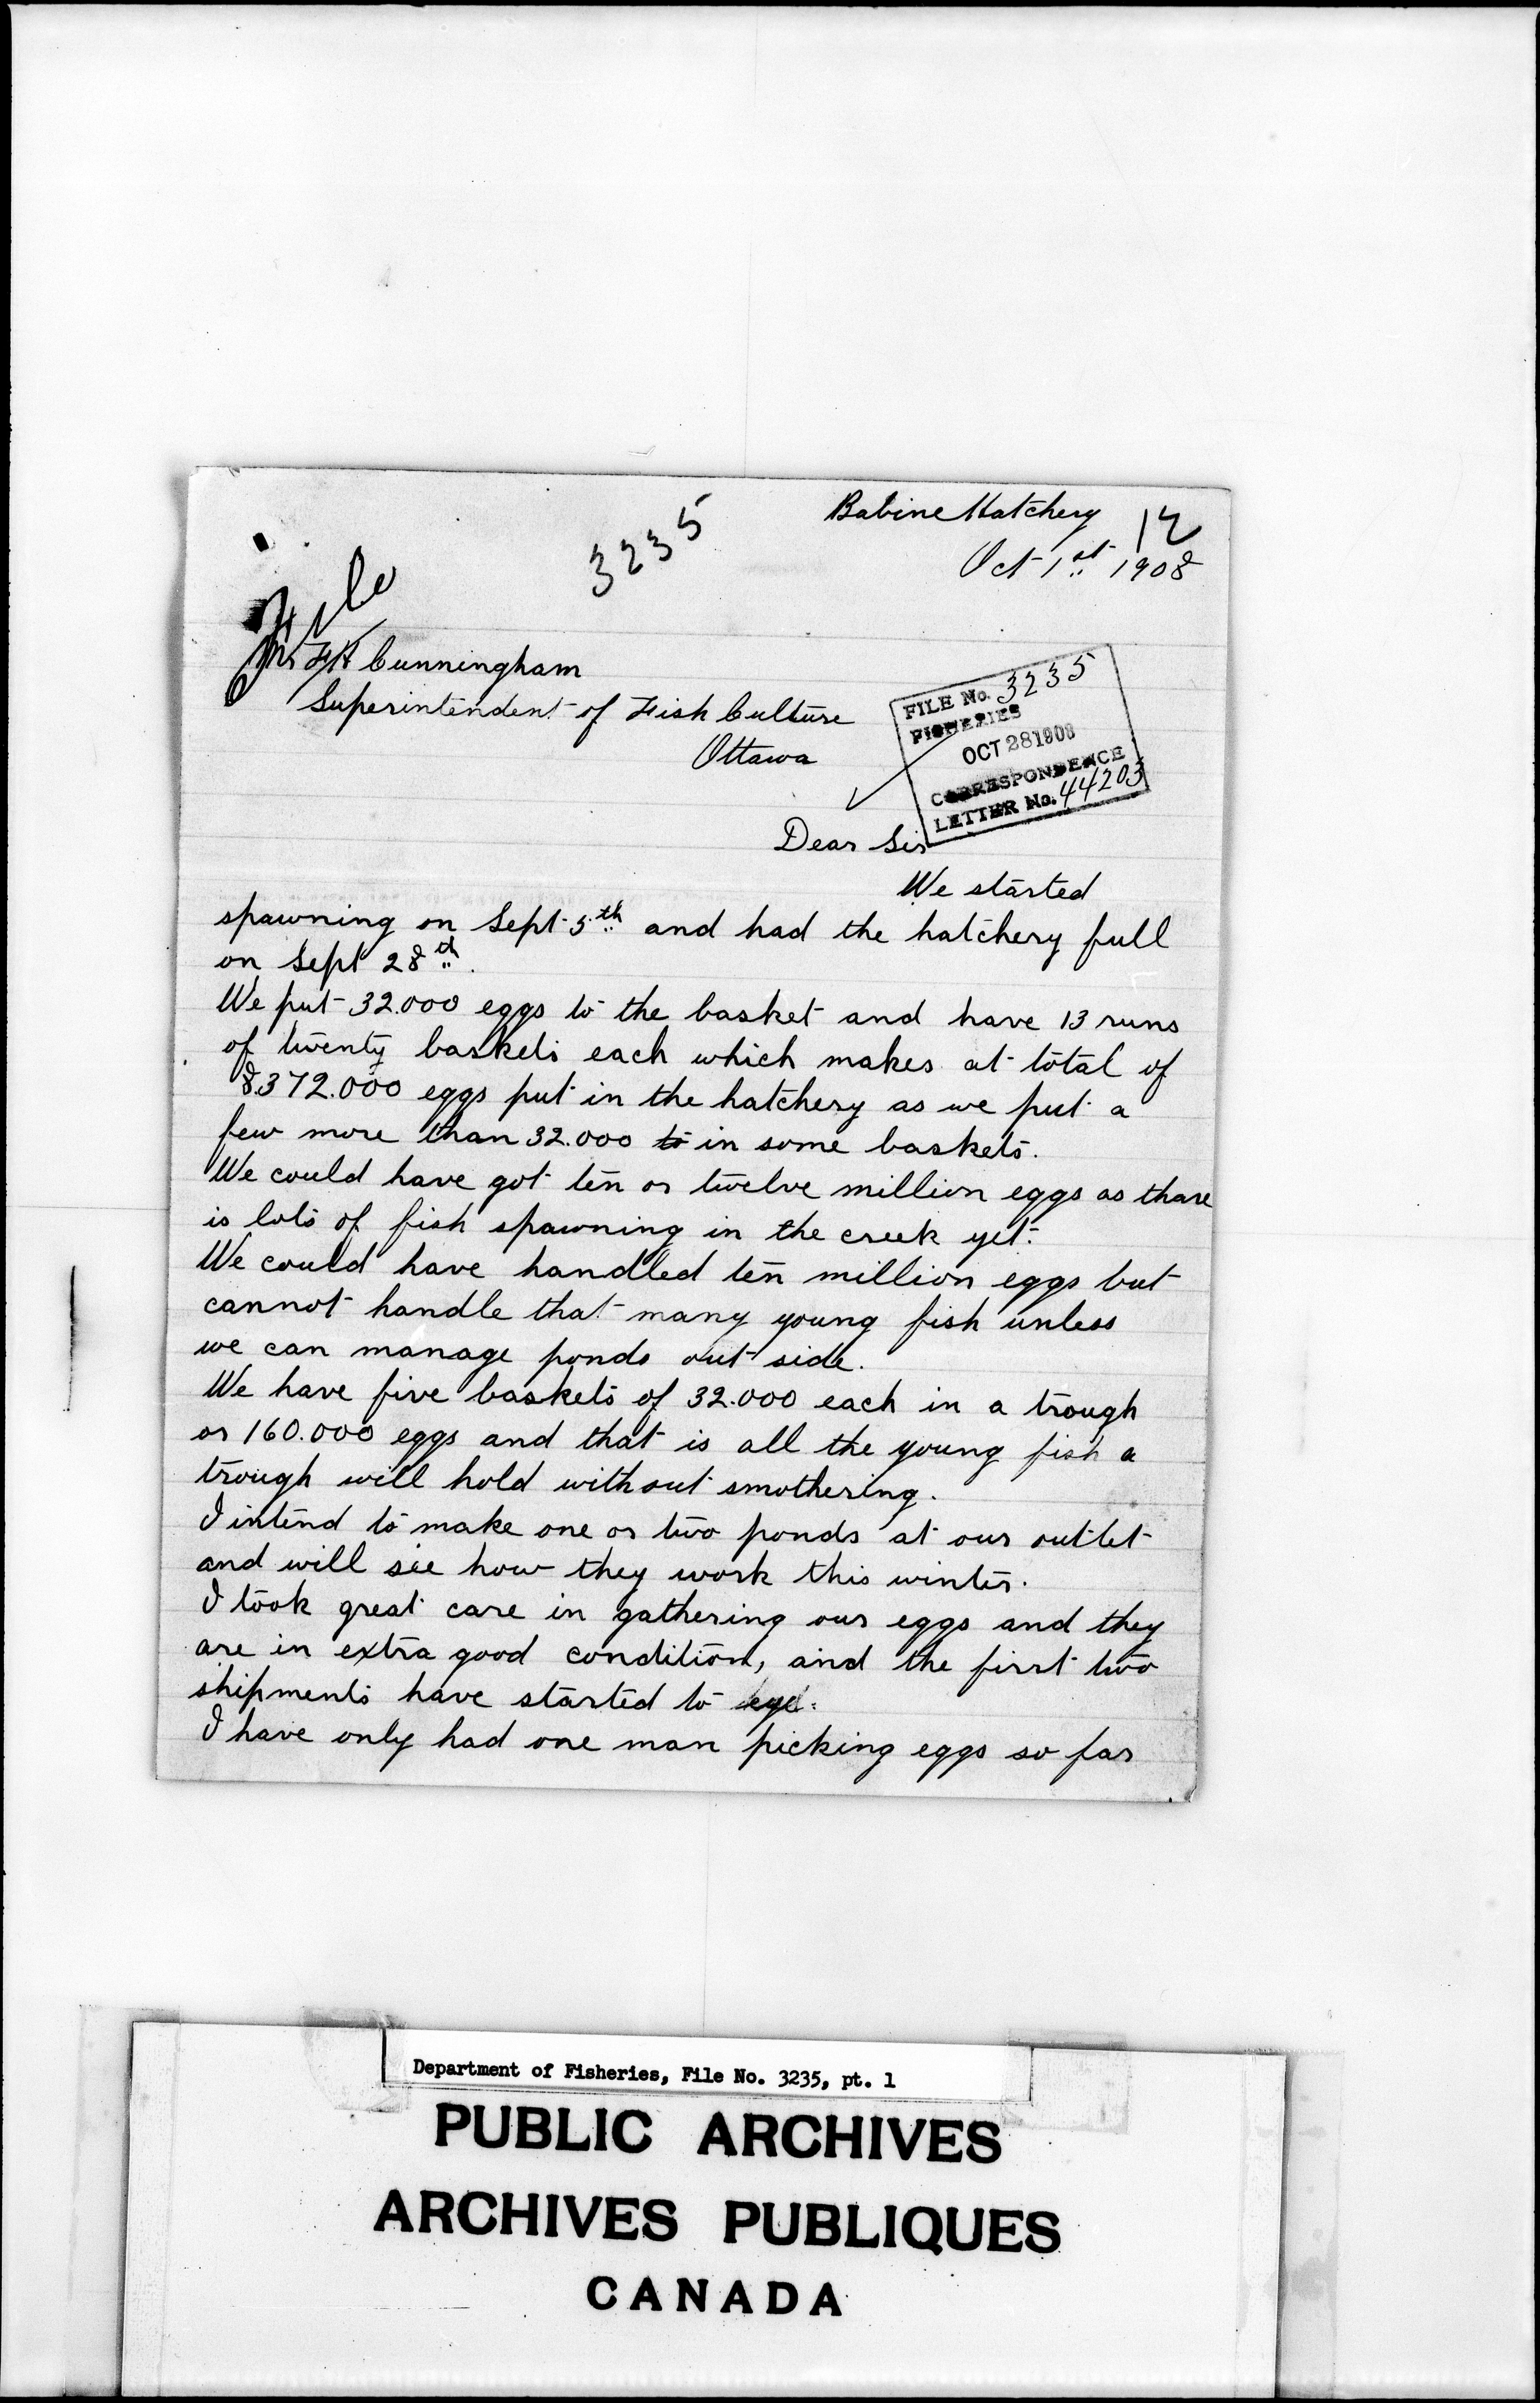 Babine Hatchery 12
Oct 1st 1908
3235
File
Mr F H Cunningham
Superintendent of Fish Culture
Ottawa
FILE No. 3235
FISHERIES
OCT 28 1908
CORRESPONDENCE
LETTER No. 44203
Dear Sir
We started
spawning on Sept 5th and had the hatchery full
on Sept 28th.
We put 32.000 eggs to the basket and have 13 runs
of twenty baskets each which makes at total of
8.372.000 eggs put in the hatchery as we put a
few more than 32.000 to in some baskets.
We could have got ten or twelve million eggs as thare
is lots of fish spawning in the creek yet.
We could have handled ten million eggs but
cannot handle that many young fish unless
we can manage ponds out side.
We have five baskets of 32.000 each in a trough
or 160.000 eggs and that is all the young fish a
trough will hold without smothering.
I intend to make one or two ponds at our outlet
and will see how they work this winter.
I took great care in gathering our eggs and they
are in extra good condition, and the first two
shipments have started to eye.
I have only had one man picking eggs so far
Department of Fisheries, File No. 3235, pt. 1
PUBLIC ARCHIVES
ARCHIVES PUBLIQUES
CANADA